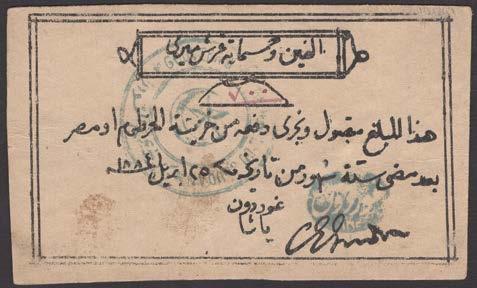 الفين وخمسماية غرش ميرى
هذا المبلغ مقبول ويجرى دفعه من خزينة الخرطوم او مصر
بعد مضى ستة شهور من تاريخه ٢٥ ابريل ١٨٨٤
غوردون
باشا